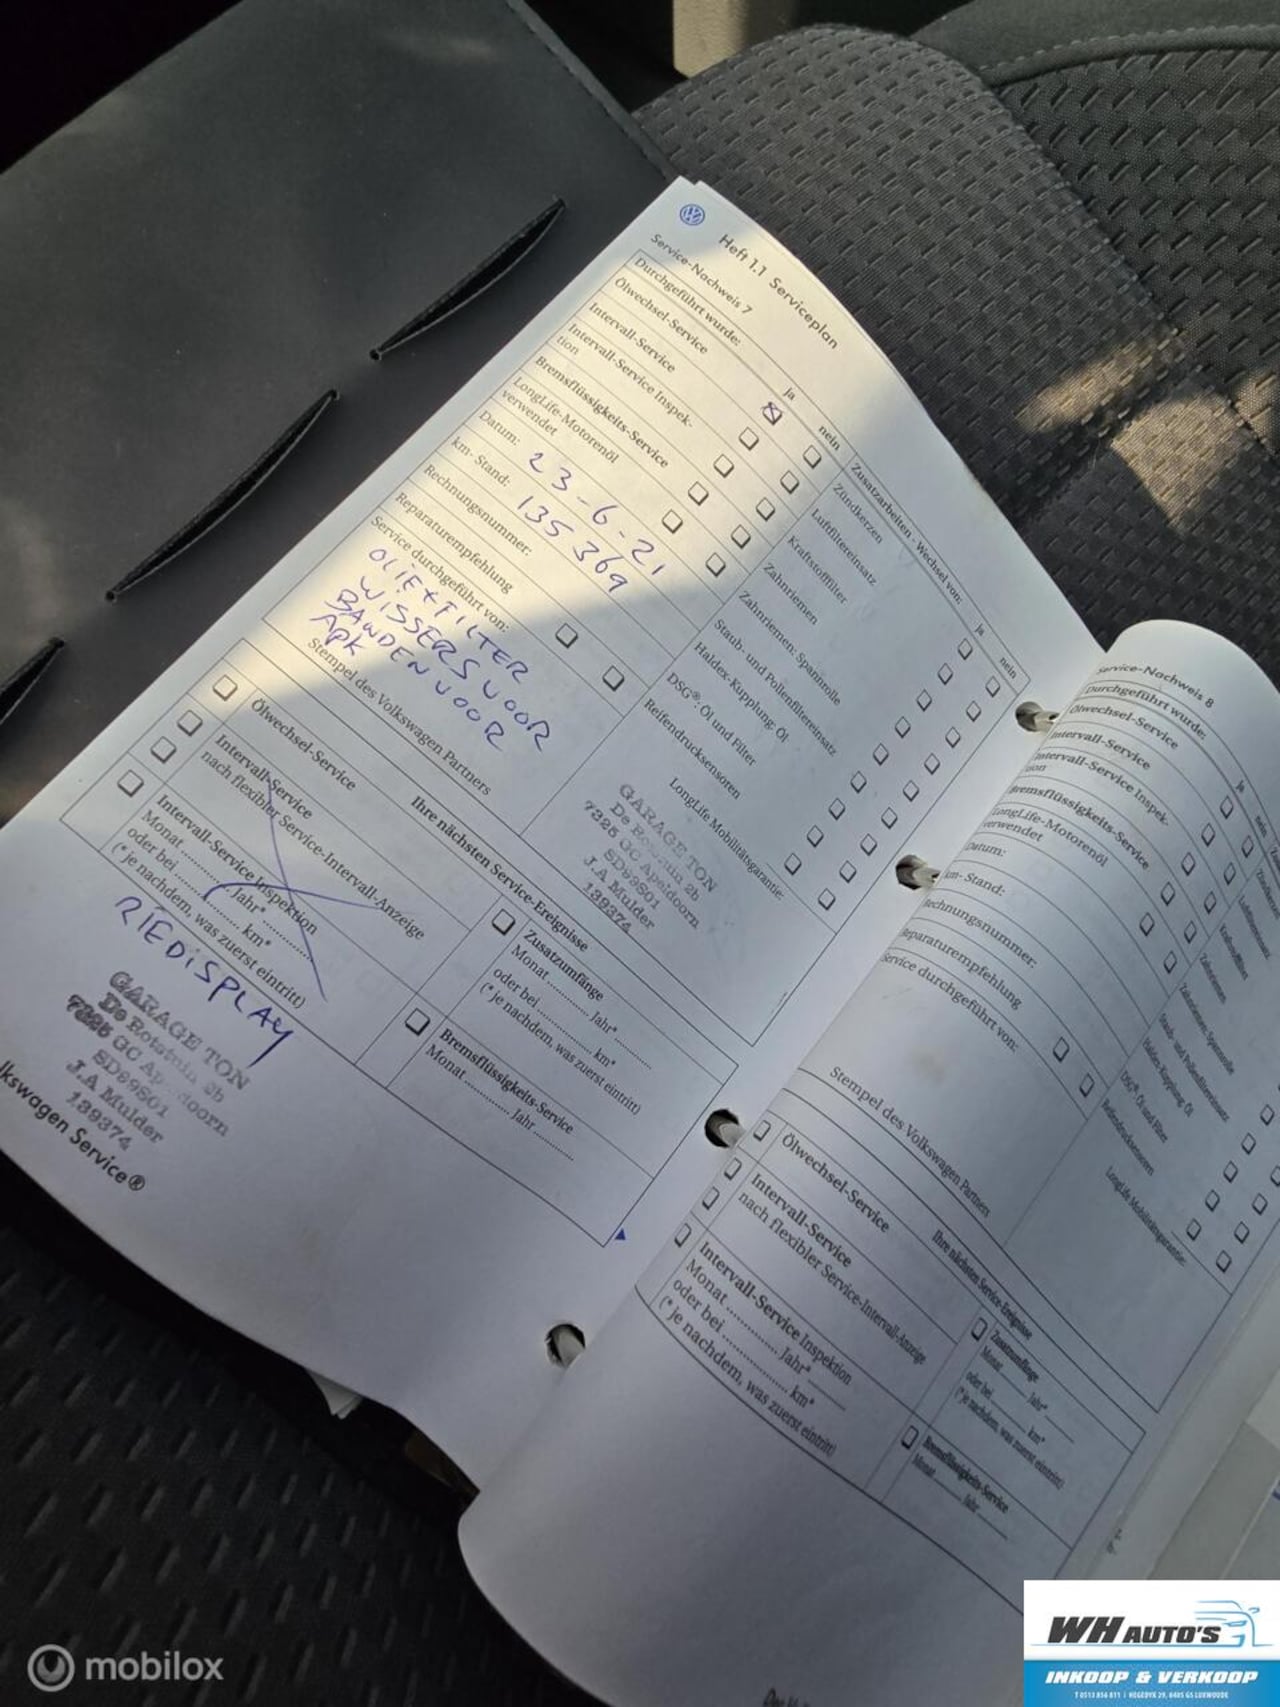 Heft 1.1 Serviceplan
Service-Nachweis 7
Durchgeführt wurde:
ja
nein
Ölwechsel-Service
Intervall-Service
Intervall-Service Inspek-
tion
Bremsflüssigkeits-Service
LongLife-Motorenöl
verwendet
Datum: 23-6-21
km-Stand: 135369
Rechnungsnummer:
Reparaturempfehlung
Service durchgeführt von:
OLIE+FILTER
WISSERS VOOR
BANDEN VOOR
APK
Stempel des Volkswagen Partners
Zusatzarbeiten - Wechsel von:
ja
nein
Zündkerzen
Luftfiltereinsatz
Kraftstofffilter
Zahnriemen
Zahnriemen: Spannrolle
Staub- und Pollenfiltereinsatz
Haldex-Kupplung: Öl
DSG®: Öl und Filter
Reifendrucksensoren
LongLife Mobilitätsgarantie:
GARAGE TON
7325 GC Apeldoorn
SD89501
J.A. Mulder
139374
Ihre nächsten Service-Ereignisse
Ölwechsel-Service
Intervall-Service
nach flexibler Service-Intervall-Anzeige
Intervall-Service Inspektion
Monat .......... Jahr* ..........
oder bei .......... km*
(*je nachdem, was zuerst eintritt)
Zusatzumfänge
Monat .......... Jahr* ..........
oder bei .......... km*
(*je nachdem, was zuerst eintritt)
Bremsflüssigkeits-Service
Monat .......... Jahr ..........
RIEDISPLAY
GARAGE TON
SD89501
J.A. Mulder
139374
lkswagen Service®
Service-Nachweis 8
Durchgeführt wurde:
ja
Ölwechsel-Service
Intervall-Service
Intervall-Service Inspek-
tion
Bremsflüssigkeits-Service
LongLife-Motorenöl
verwendet
Datum:
km-Stand:
Rechnungsnummer:
Reparaturempfehlung
Service durchgeführt von:
Stempel des Volkswagen Partners
Zahnriemen: Spannrolle
Staub- und Pollenfiltereinsatz
Haldex-Kupplung: Öl
DSG®: Öl und Filter
Reifendrucksensoren
LongLife Mobilitätsgarantie:
Ihre nächsten Service-Ereignisse
Ölwechsel-Service
Intervall-Service
nach flexibler Service-Intervall-Anzeige
Intervall-Service Inspektion
Monat .......... Jahr* ..........
oder bei .......... km*
(*je nachdem, was zuerst eintritt)
Zusatzumfänge
Monat .......... Jahr* ..........
oder bei .......... km*
(*je nachdem, was zuerst eintritt)
Bremsflüssigkeits-Service
Monat .......... Jahr ..........
mobilox
WH AUTO'S
INKOOP & VERKOOP
T 0513 856 811 | HEGEDYK 29, 8405 GS LUXWOUDE